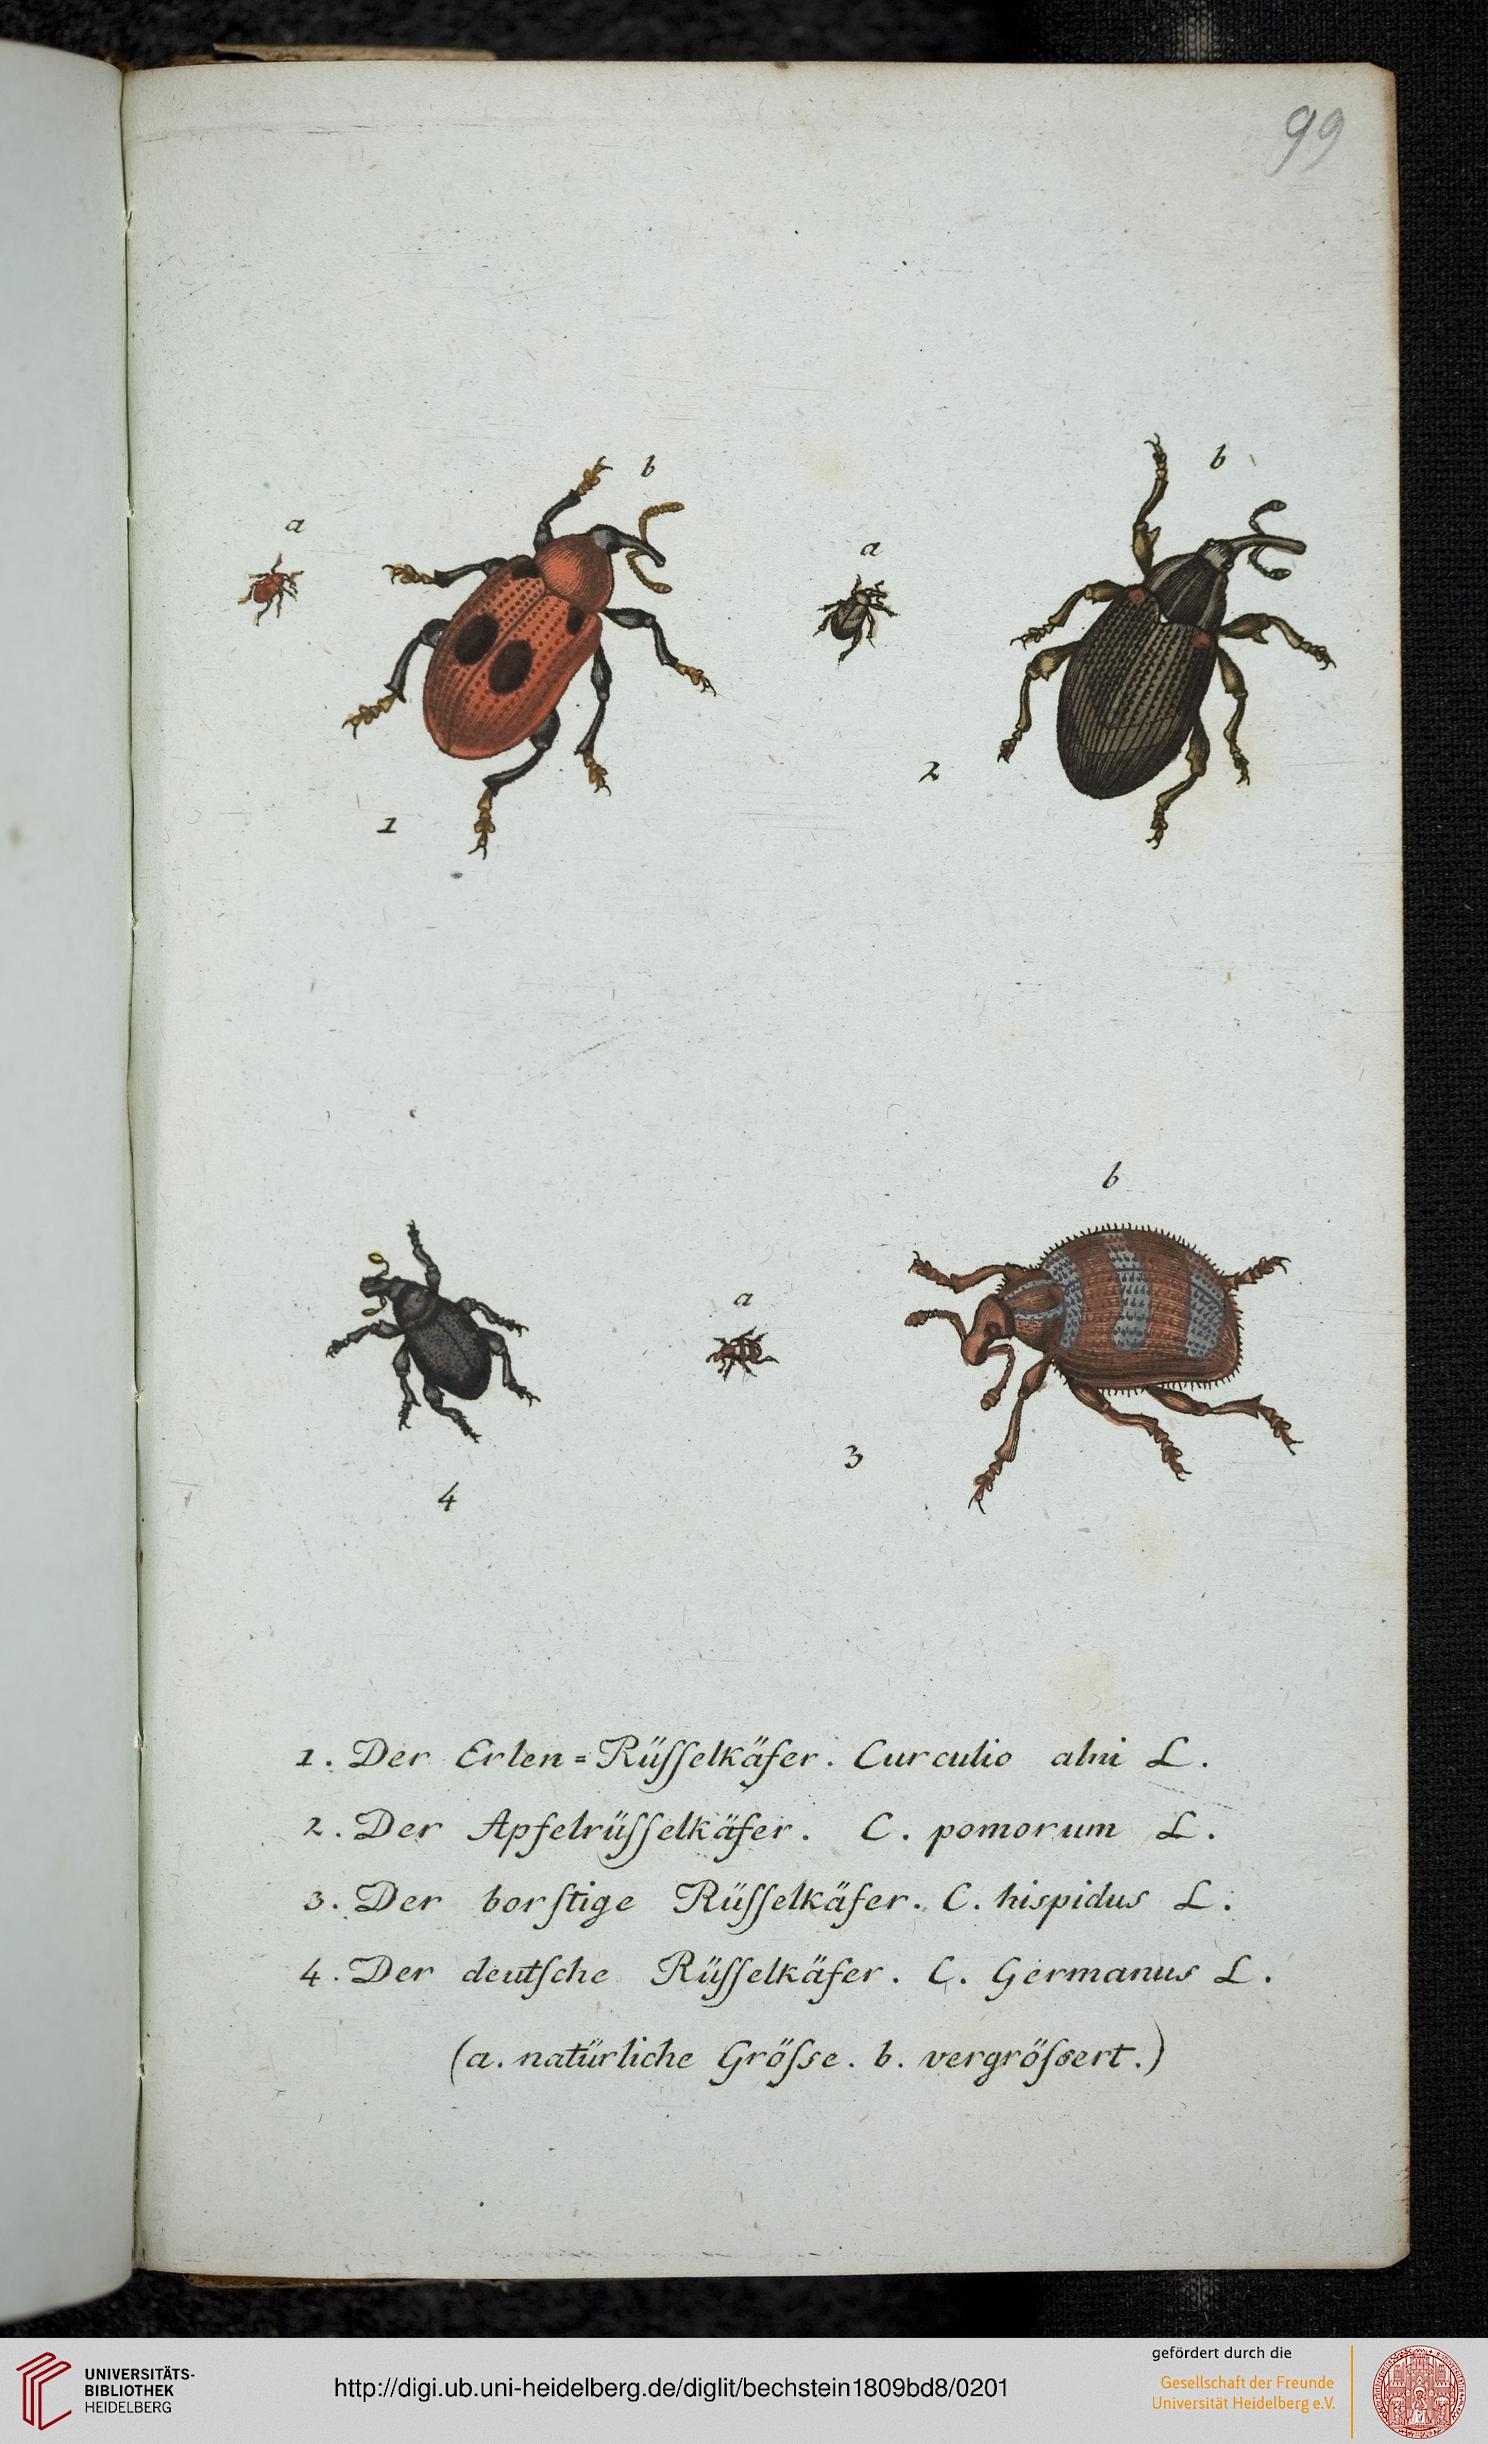 99
a
b
a
b
1
2
b
a
3
4
1. Der Erlen=Rüſſelkäfer. Curculio alni L.
2. Der Apfelrüſſelkäfer. C. pomorum L.
3. Der borſtige Rüſſelkäfer. C. hispidus L.
4. Der deutſche Rüſſelkäfer. C. Germanus L.
(a. natürliche Gröſse. b. vergröſsert.)
UNIVERSITÄTS-
BIBLIOTHEK
HEIDELBERG
http://digi.ub.uni-heidelberg.de/diglit/bechstein1809bd8/0201
gefördert durch die
Gesellschaft der Freunde
Universität Heidelberg e.V.